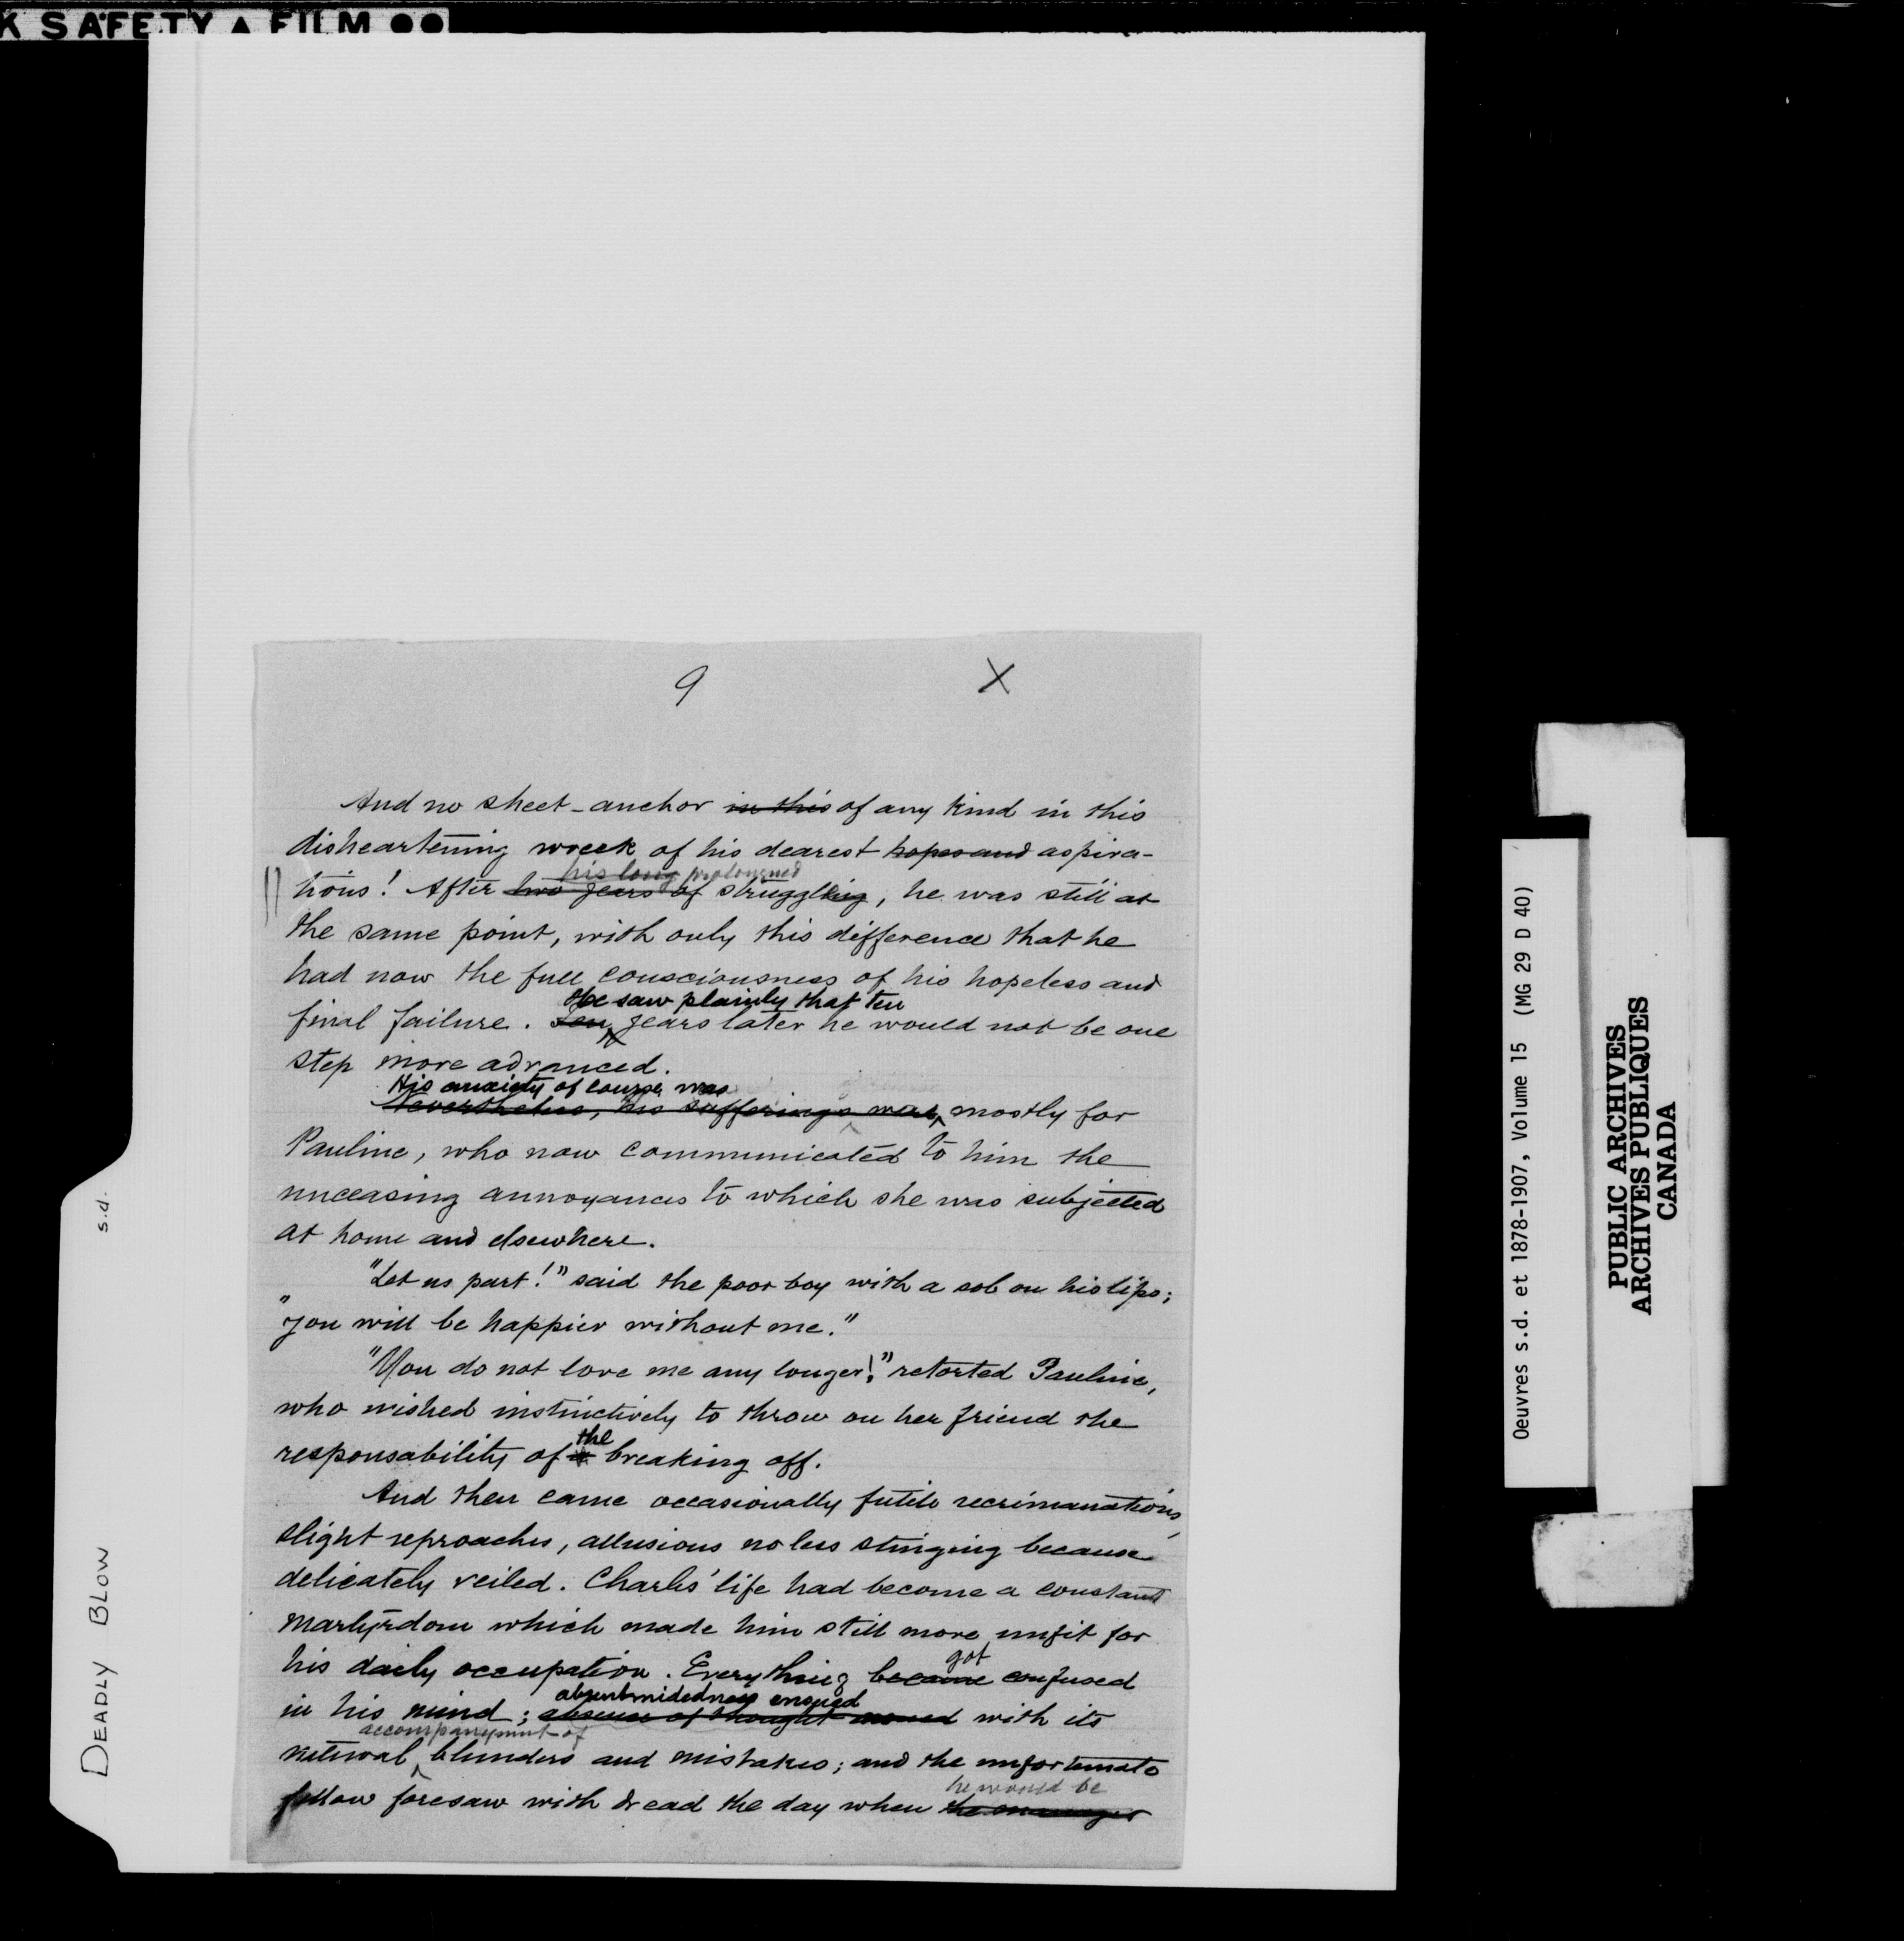 K SAFETY ▲ FILM ●●
9 X
And no sheet-anchor in this of any kind in this
disheartening wreck of his dearest hopes and aspira-
his long prolonged
tions! After two years of struggling, he was still at
the same point, with only this difference that he
had now the full consciousness of his hopeless and
He saw plainly that ten
final failure. Ten years later he would not be one
step more advanced.
His anxiety of course was
Nevertheless, his sufferings were mostly for
Pauline, who now communicated to him the
unceasing annoyances to which she was subjected
at home and elsewhere.
"Let us part!" said the poor boy with a sob on his lips;
"you will be happier without me."
"You do not love me any longer!" retorted Pauline,
who wished instinctively to throw on her friend the
the
responsability of a breaking off.
And then came occasionally futile recrimanations,
slight reproaches, allusions no less stinging because
delicately veiled. Charles' life had become a constant
martyrdom which made him still more unfit for
got
his daily occupation. Everything became confused
absentmidedness ensued
in his mind; absence of thought ensued with its
accompanyment of
natural blunders and mistakes; and the unfortunate
he would be
fellow foresaw with dread the day when the manager
DEADLY BLOW s.d.
Oeuvres s.d. et 1878-1907, Volume 15 (MG 29 D 40)
PUBLIC ARCHIVES
ARCHIVES PUBLIQUES
CANADA